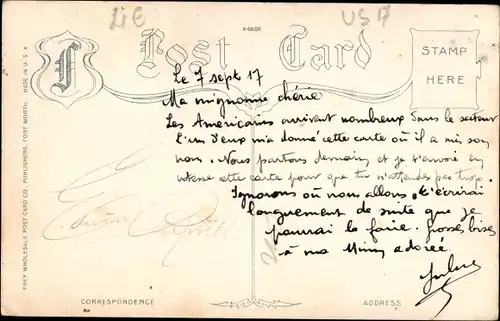 LIE
US 17
A-6659
Post Card
STAMP
HERE
FREY WHOLESALE POST CARD CO. PUBLISHERS, FORT WORTH. MADE IN U.S.A
Le 7 sept 17
Ma mignonne chérie
Les Américains arrivent nombreux dans le secteur
L'un d'eux m'a donné cette carte où il a mis son
nom. Nous partons demain et je t'envoie en
vitesse cette carte pour que tu n'attendes pas trop.
Ignorons où nous allons, t'écrirai
longuement de suite que je
pourrai le faire. Grosses bises
à ma Mimi adorée.
CORRESPONDENCE
ADDRESS